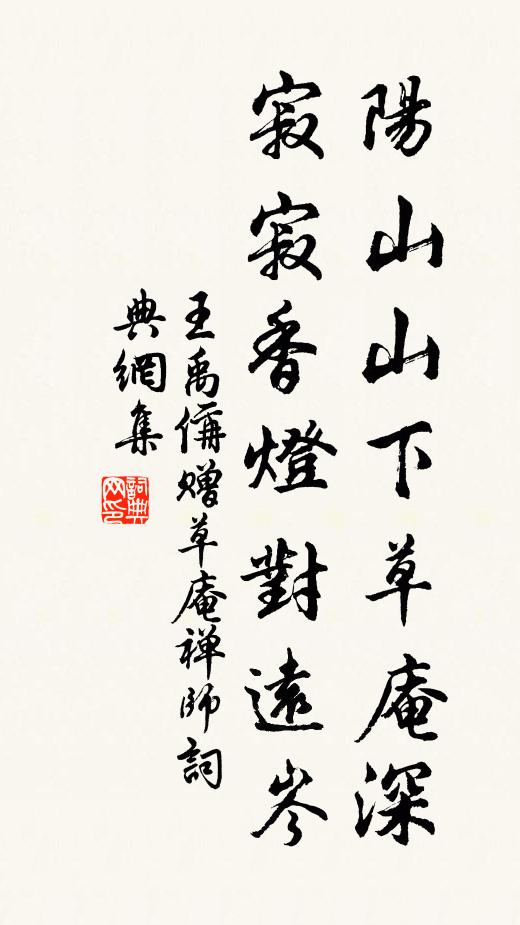 陽山山下草庵深
寂寂香燈對遠岑
王禹偁贈草庵禅師詞
典網集
詞典
网印